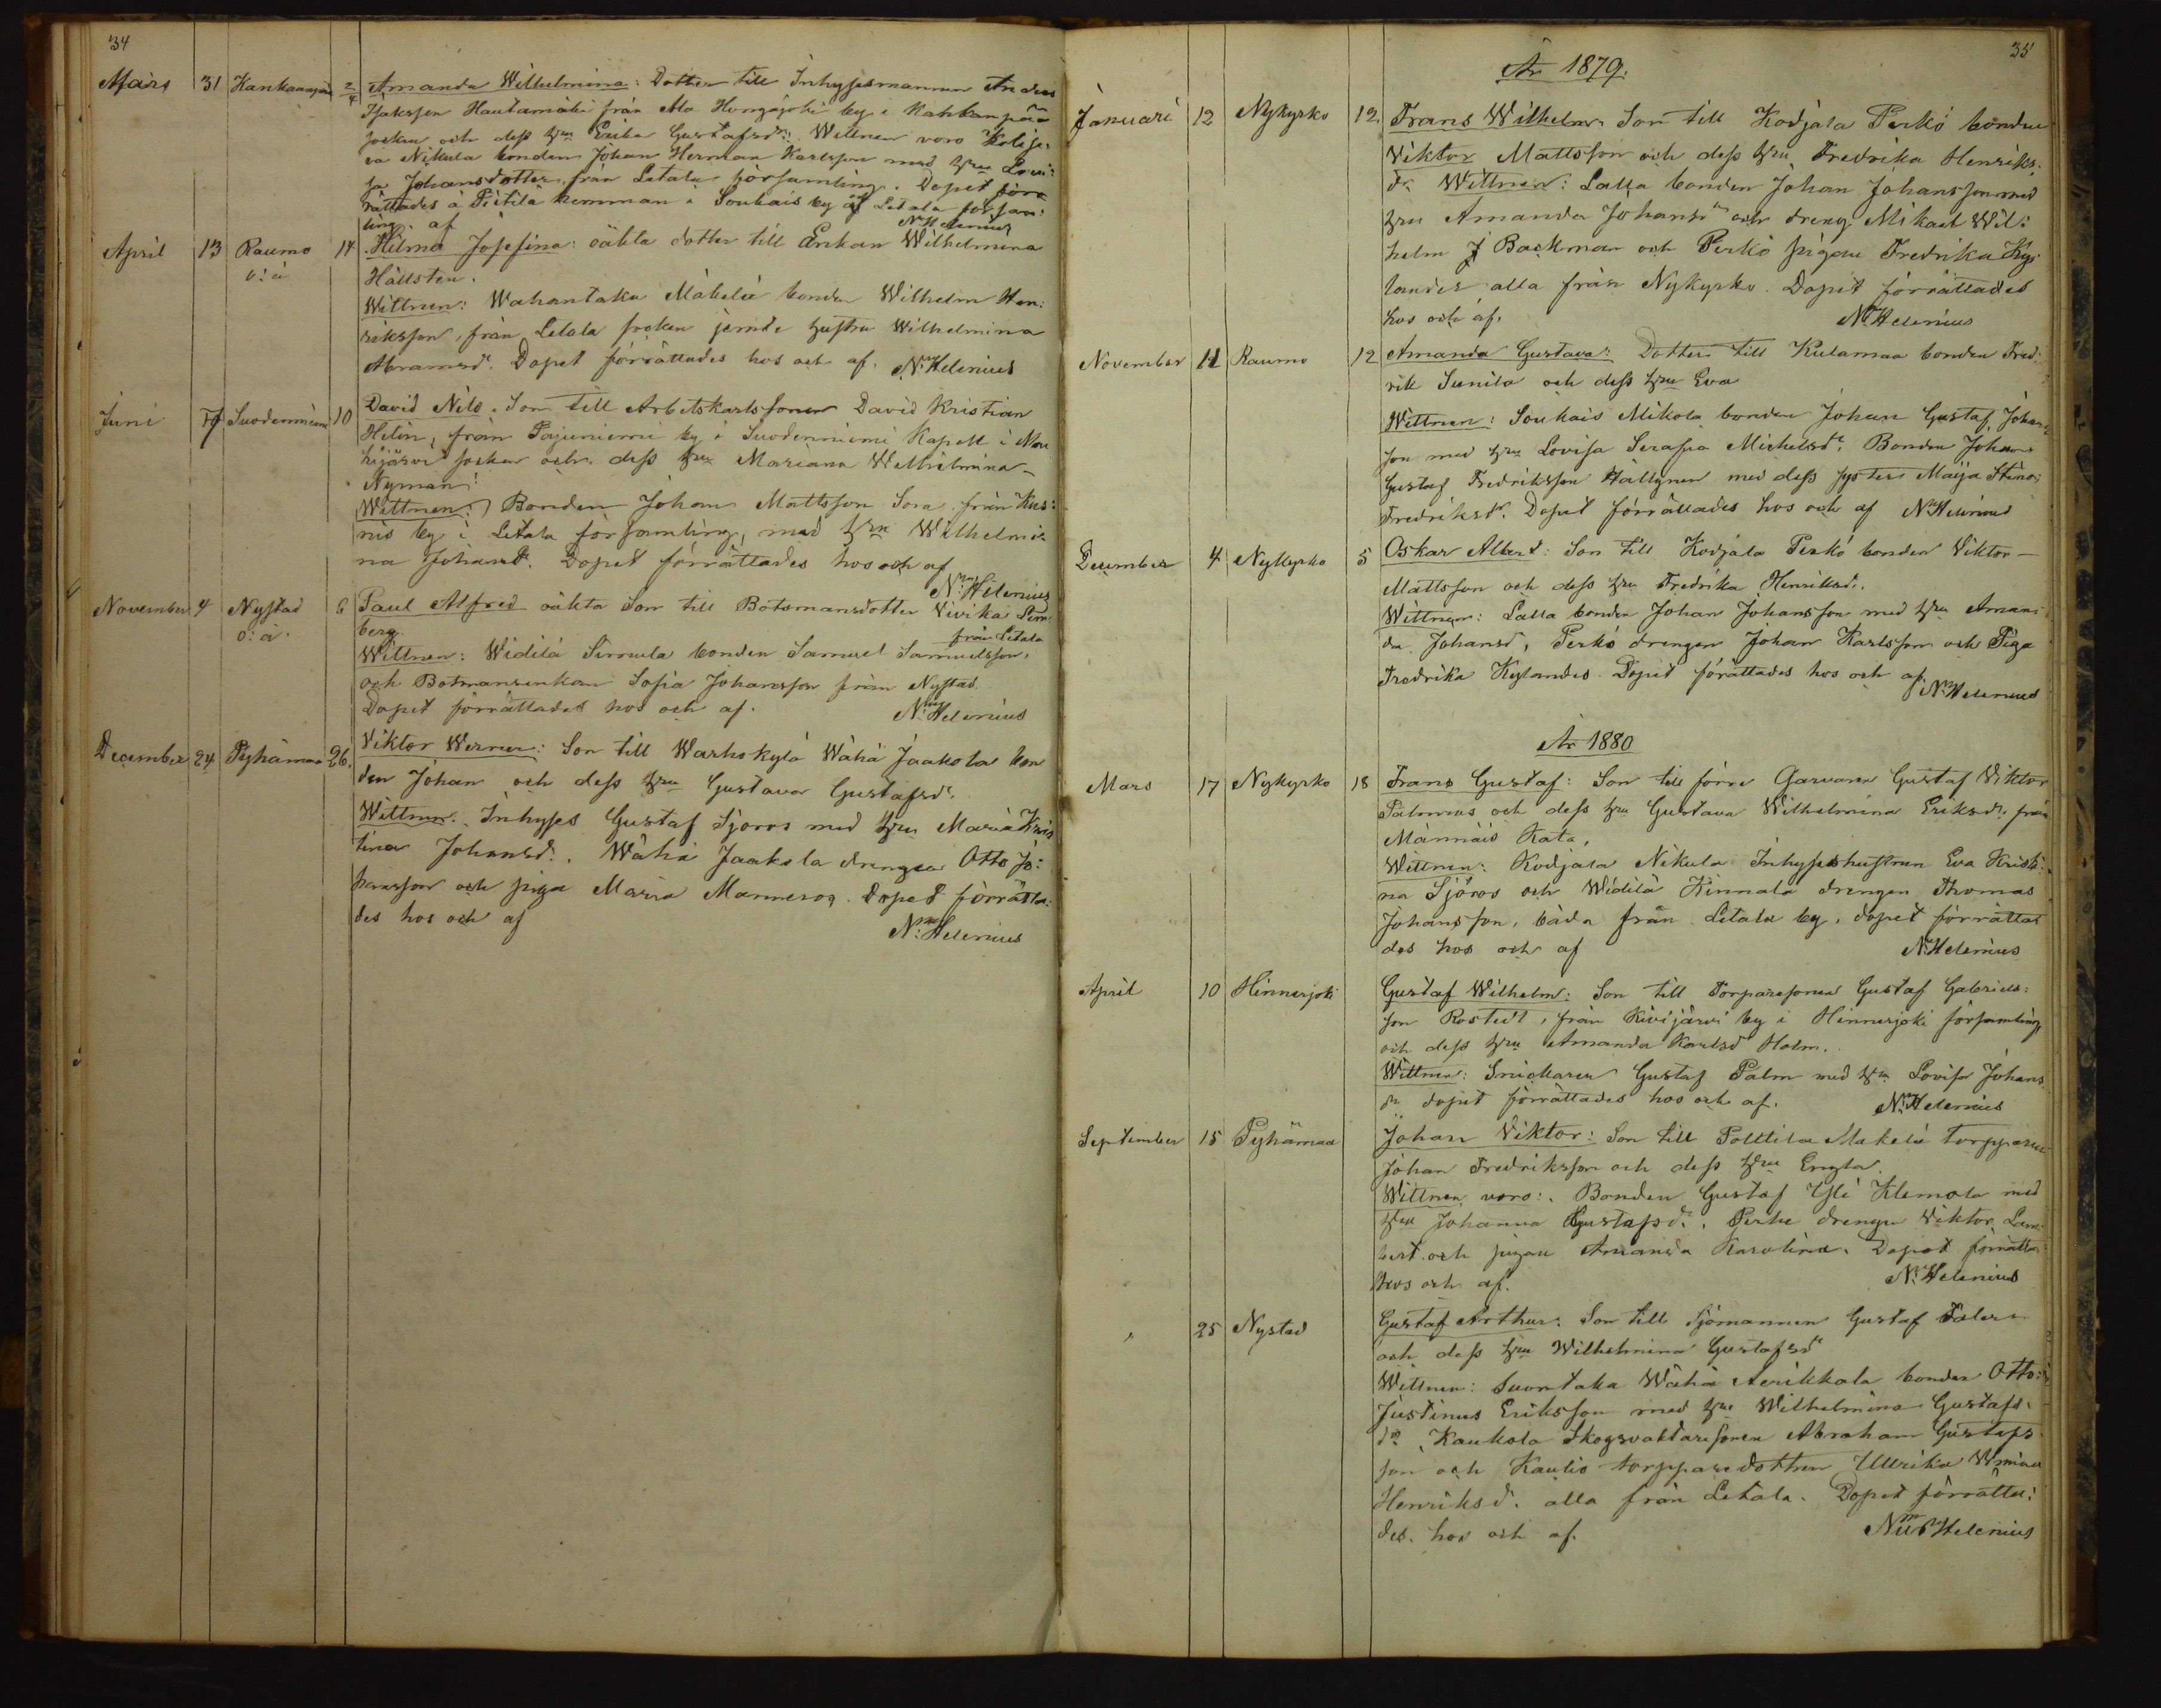 34
Mars 31 Kankaanpää 2/4 Amanda Wilhelmina: Dotter till Inhysesmannen Anders
Isaksson Hautamäki från Ala Hongojoki by i Kankanpää
socken och dess hru Erika Gustafsdr: Wittnen voro
Nikula bonden Johan Herman Karlsson med hru Lovi:
sa Johansdotter från Letala församling. Dopet för:
rättades å Pietilä hemman i Soukais by af Letala försam:
ling. af NmHelenius
April 13 Raumo 14 Hilma Josefina: oäkta dotter till Enkan Wilhelmina
o: ä Hällsten.
Wittnen: Wahantaka Mäkelä bonden Wilhelm Hen:
riksson, från Letala socken jemte hustru Wilhelmina
Abramsdr. Dopet förrättades hos och af. NmHelenius
Juni Suodenniemi 10 David Nils. Son till Arbetskarlssonen David Kristian
Helin, från Pajuniemi by i Suodenniemi Kapell i Mou
hijärvi socken och dess hru Mariana Wilhelmina
Nyman.
Wittnen: Bonden Johan Mattsson Sora från Kus:
nis by i Letala församling, med hru Wilhelmi:
na Johansd. Dopet förrättades hos och af
NmHelenius
November 4 Nystad 6 Paul Alfred oäkta Son till Båtsmansdotter Vivika
o: ä. berg.
från Letala
Wittnen: Widilä Sirmula bonden Samuel Samuelsson,
och Botsmansenkan Sofia Johansson från Nystad.
Dopet förrättades hos och af. NmHelenius
December 24 Pyhämaa 26. Viktor Werner: Son till Warhokylä Wähä Jaakola bon
den Johan och dess hru Gustava Gustafsdr.
Wittnen. Inhyses Gustaf Sjöros med hru Maria Kris
tina Johansdr. Wähä Jaakola drengen Otto Jo:
hansson och piga Maria Manneros. Dopet förrätta:
des hos och af
NmHelenius
35
År 1879.
Januari 12 Nykyrko 12. Frans Wilhelm Son till Kodjala Perkö bonden
Viktor Mattsson och dess hru Fredrika Henriks:
dr. Wittnen: Lalla bonden Johan Johansson med
hru Amanda Johansdr och dreng Mikael Wil:
helm J Backman och Perkö pigan Fredrika Ky:
landes alla från Nykyrko. Dopet förrättades
hos och af. NmHelenius
November 11 Raumo 12 Amanda Gustava: Dotter till Kulamaa bonden Fred:
rik Sunila och dess hru Eva
Wittnen: Soukais Mikola bonden Johan Gustaf Johans
son med hru Lovisa Serafia Michelsdr. Bonden Johan
Gustaf Fredriksson Hällgren med dess syster Maija Stina
Fredriksdr. Dopet förrättades hos och af NmHelenius
December 4 Nykyrko 5 Oskar Albert: Son till Kodjala Perkö bonden Viktor
Mattsson och dess hru Fredrika Henriksdr.
Wittnen: Lalla bonden Johan Johansson med hru Aman:
da Johansd, Perkö drengen Johan Karlsson och Piga
Fredrika Kylandes. Dopet förättades hos och af.
NmHelenius
År 1880
Mars 17 Nykyrko 18 Frans Gustaf: Son till förre Garvaren Gustaf Viktor
Palmros och dess hru Gustava Wilhelmina Eriksdr. från
Männäis Kata,
Wittnen: Kodjala Nikula Inhyseshustrun Eva Kristi:
na Sjöros och Widilä Kinnala drengen Thomas
Johansson, båda från Letala by. dopet förrättat
des hos och af NmHelenius
April 10 Hinnerjoki Gustaf Wilhelm: Son till Torparesonen Gustaf Gabriels:
son Rostedt, från Kivijärvi by i Hinnerjoki församling
och dess hru Amanda Karlsdr Holm.
Wittnen: Snickaren Gustaf Palm med hru Lovisa Johans
dr dopet förrättades hos och af. NmHelenius
September 15 Pyhämaa Johan Viktor: Son till Polttila Makelä torpparen
Johan Fredriksson och dess hru Engla.
Wittnen voro: Bonden Gustaf Yli Klemola med
hru Johanna Gustafsdr. Perhe drengen Viktor Lam:
bert och pigan Amanda Karolina. Dopet förrätta
hos och af. NmHelenius
" 25 Nystad Gustaf Arthur: Son till Sjömannen Gustaf Falen
och dess hru Wilhelmina Gustafsdr
Wittnen: Suontaka Wähä Aerikkala bonden Otto
Justinus Eriksson med hru Wilhelmina Gustafs
dr, Kaukola Skogsvaktaresonen Abraham Gustafs
son och Kaulio torpparedottern Ulrika Wmina
Henriksd. alla från Letala. Dopet förrätta:
des. hos och af. Nm Helenius